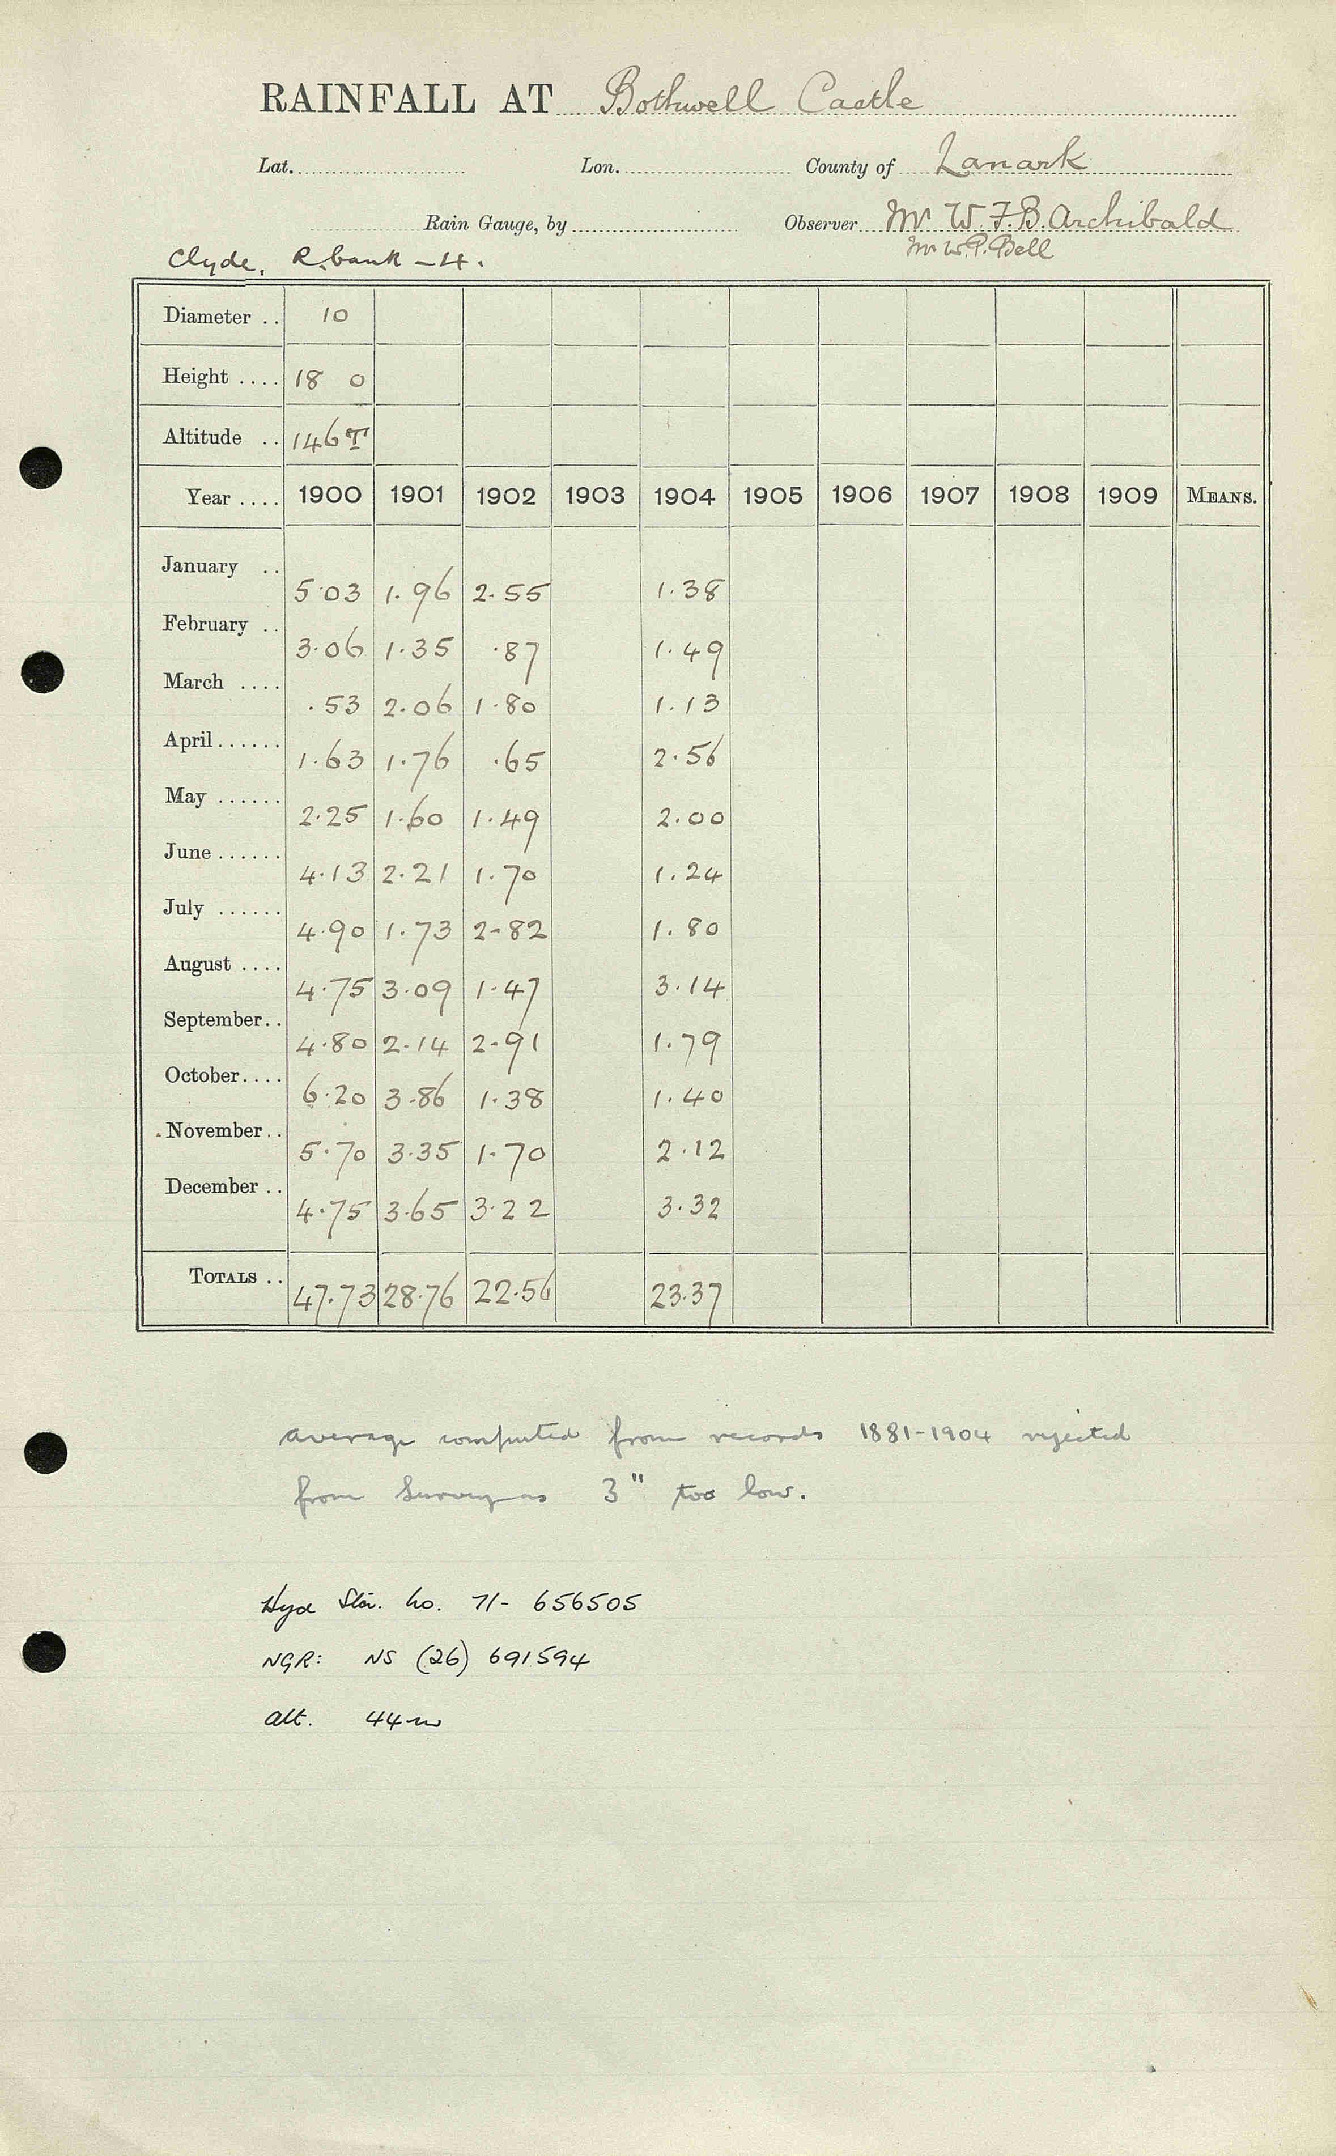 RAINFALL AT Bothwell Castle
Lat. Lon. County of Lanark
Rain Gauge, by Observer Mr W.F.B. Archibald
Mr W.P. Bell
Clyde, R. bank - 4.
Diameter .. 10
Height .... 18 0
Altitude .. 146 T
Year .... 1900 1901 1902 1903 1904 1905 1906 1907 1908 1909 MEANS.
January .. 5.03 1.96 2.55 1.38
February .. 3.06 1.35 .87 1.49
March .... .53 2.06 1.80 1.13
April ...... 1.63 1.76 .65 2.56
May ...... 2.25 1.60 1.49 2.00
June ...... 4.13 2.21 1.70 1.24
July ...... 4.90 1.73 2.82 1.80
August .... 4.75 3.09 1.47 3.14
September .. 4.80 2.14 2.91 1.79
October .... 6.20 3.86 1.38 1.40
November .. 5.70 3.35 1.70 2.12
December .. 4.75 3.65 3.22 3.32
TOTALS .. 47.73 28.76 22.56 23.37
average computed from records 1881-1904 rejected
from Survey as 3" too low.
Hyd Stn. No. 71- 656505
NGR: NS (26) 691594
alt. 44m